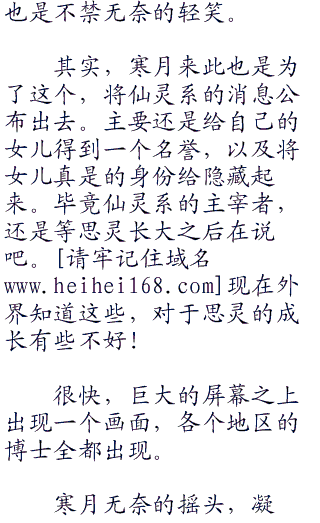 也是不禁无奈的轻笑。
其实，寒月来此也是为
了这个，将仙灵系的消息公
布出去。主要还是给自己的
女儿得到一个名誉，以及将
女儿真是的身份给隐藏起
来。毕竟仙灵系的主宰者，
还是等思灵长大之后在说
吧。[请牢记住域名
www.heihei168.com]现在外
界知道这些，对于思灵的成
长有些不好！
很快，巨大的屏幕之上
出现一个画面，各个地区的
博士全都出现。
寒月无奈的摇头，凝